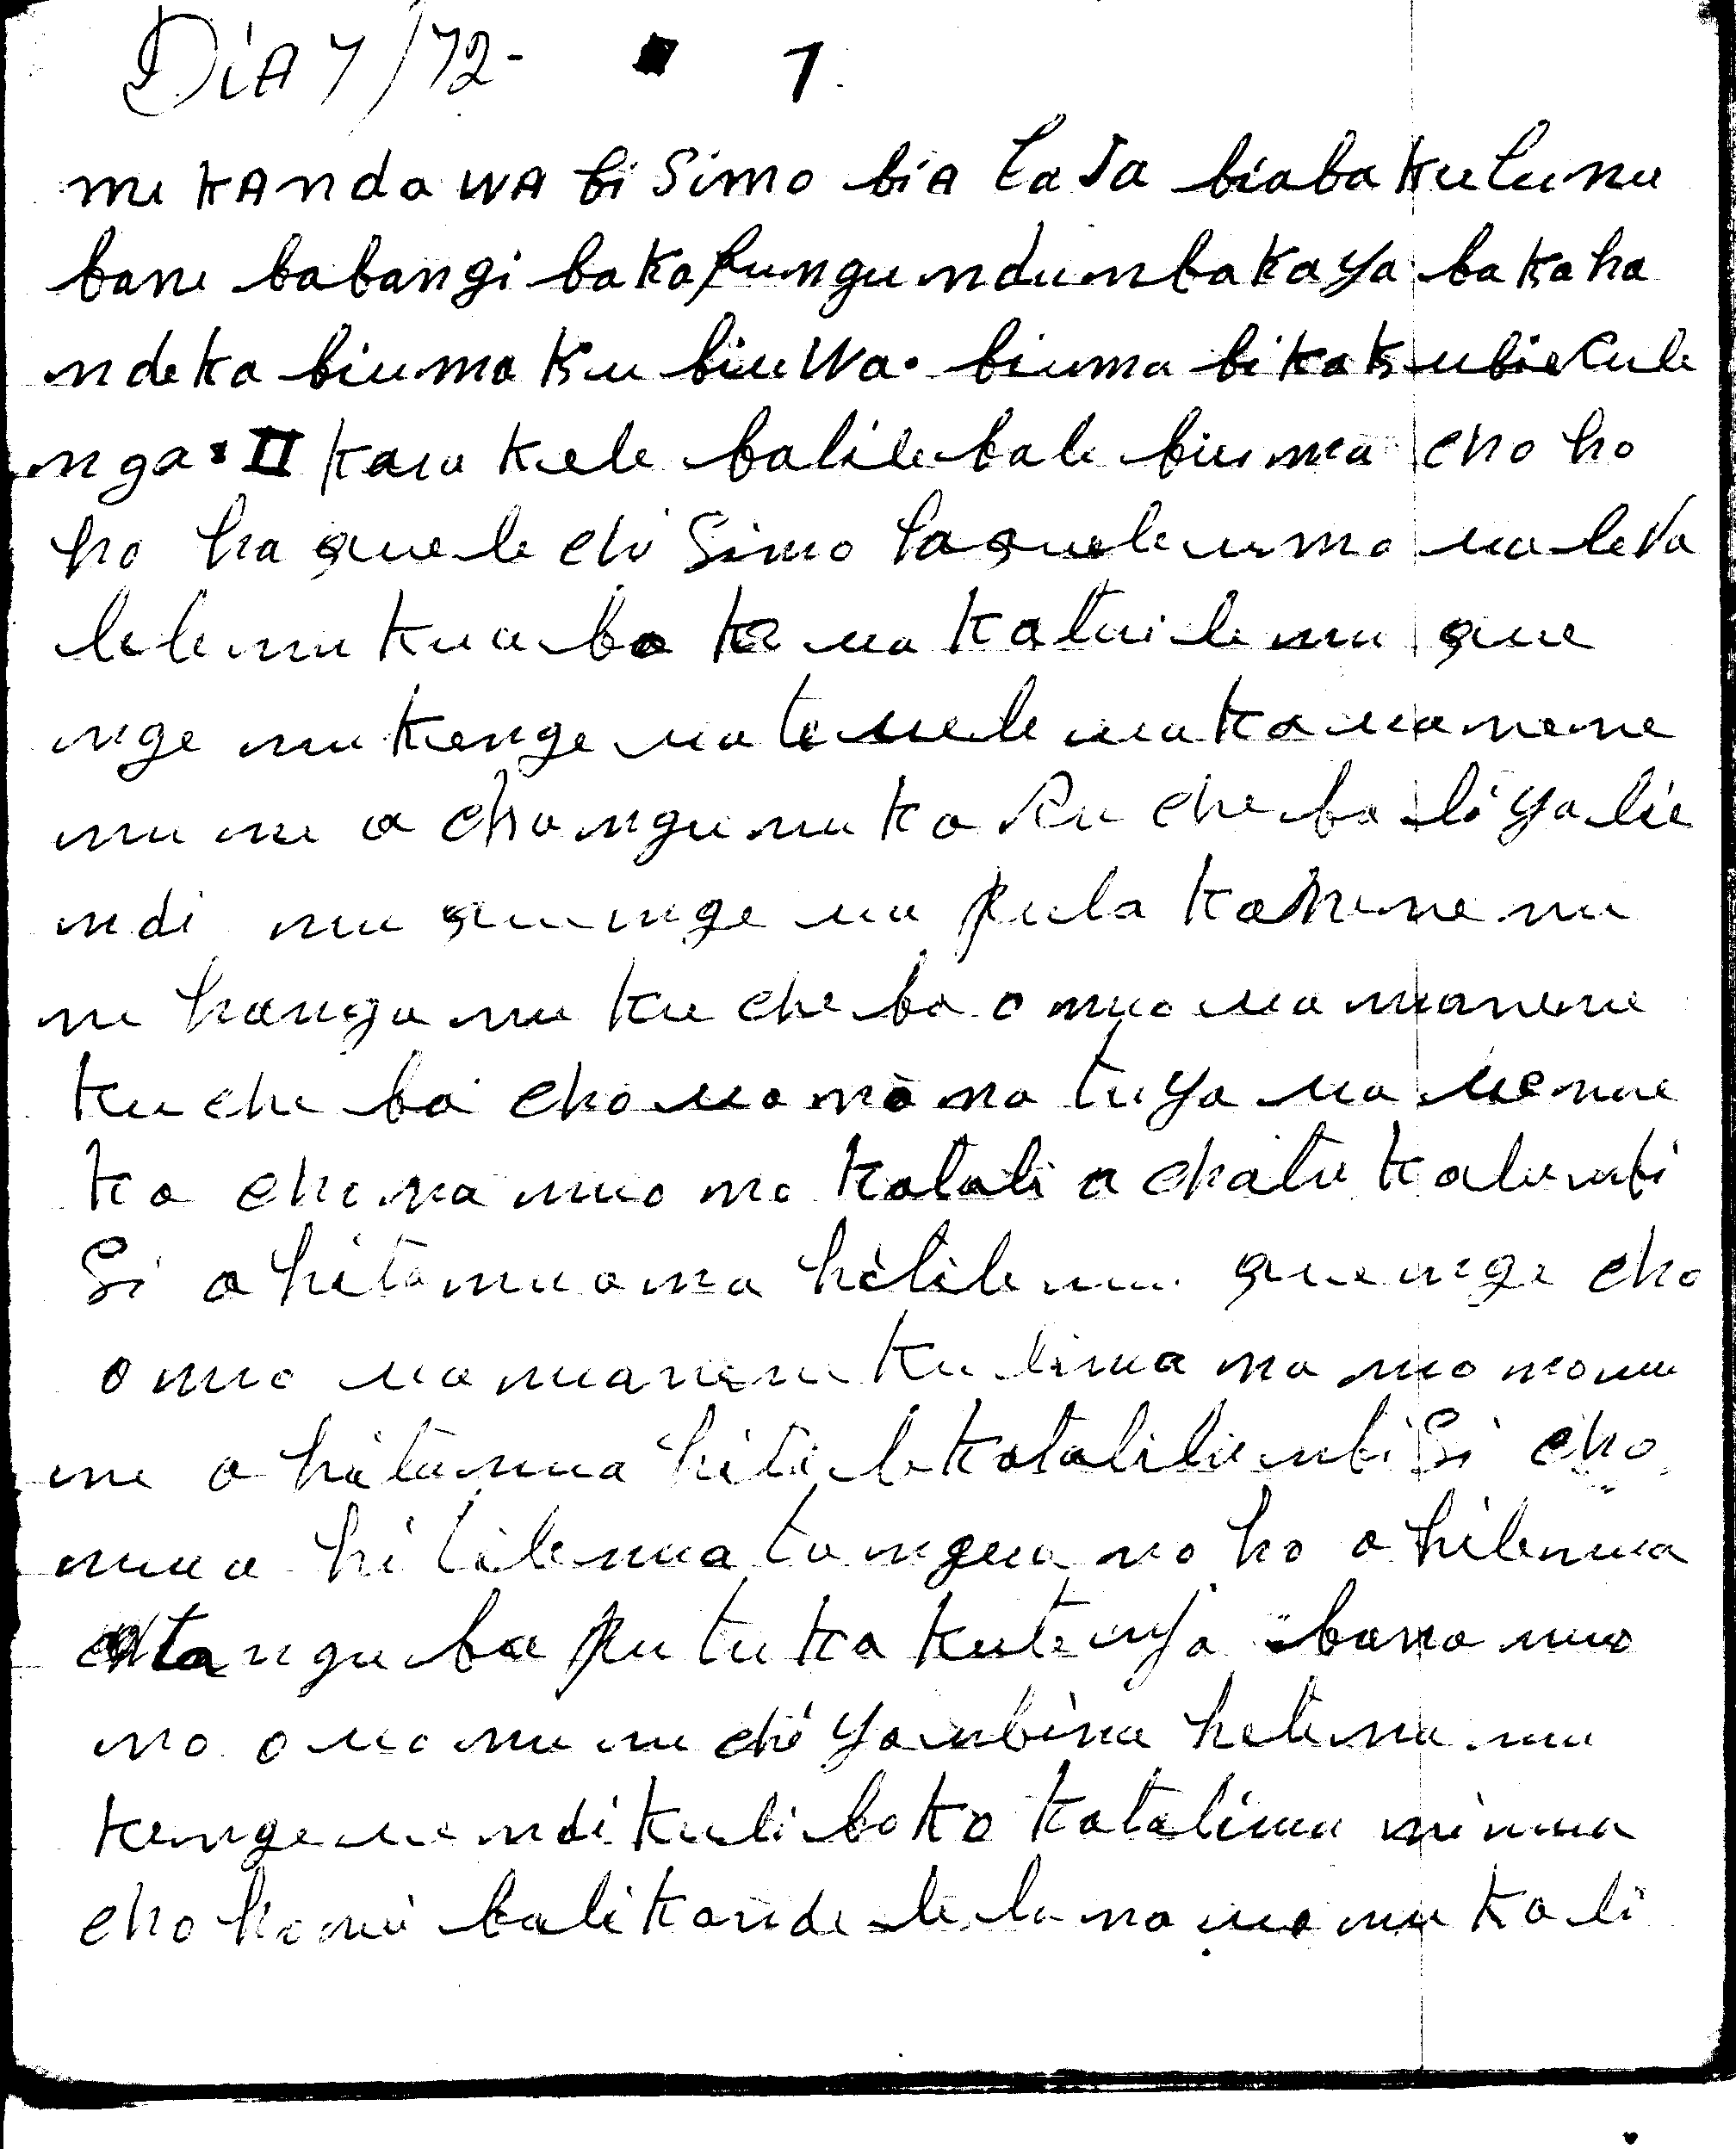 DiA 7/72- 1.
mukAnda WA bi Simo biA laza biaba kulunu
bane babangi bakafungu ndumbakaya bakaha
ndeka biuma ku biuWa. biuma bikakubiekule
nga: II kalu kele balile bale biuma cho ho
ho ha quele chi Simo laquele umo ualeva
lele mukua bo ka ua katuile mu que
nge mukenge uatemuele uaka ua nene
mu ne a changunuka ku cheba li ya lie
ndi mu quenge ua pula kanene nu
ne hangu nu ku cheba o muo ua manene
ku che ba cho ua mana tuya ua uenue
ka china muo na katali a chatu kalumbi
Si a hita mua ma hitile mu quenge cho
o muo ua manene ku lima na muo manu
ne a hita mua hitile katalilie mbi Si cho
mua hitile mua tangua no ho a hile mua
tangu ba putuka kutenya bana muo
no o ua mu nu chi yambina hetena mu
kenge uendi kuli bako katalima nimua
cho hanu balikandelela na ua mukali